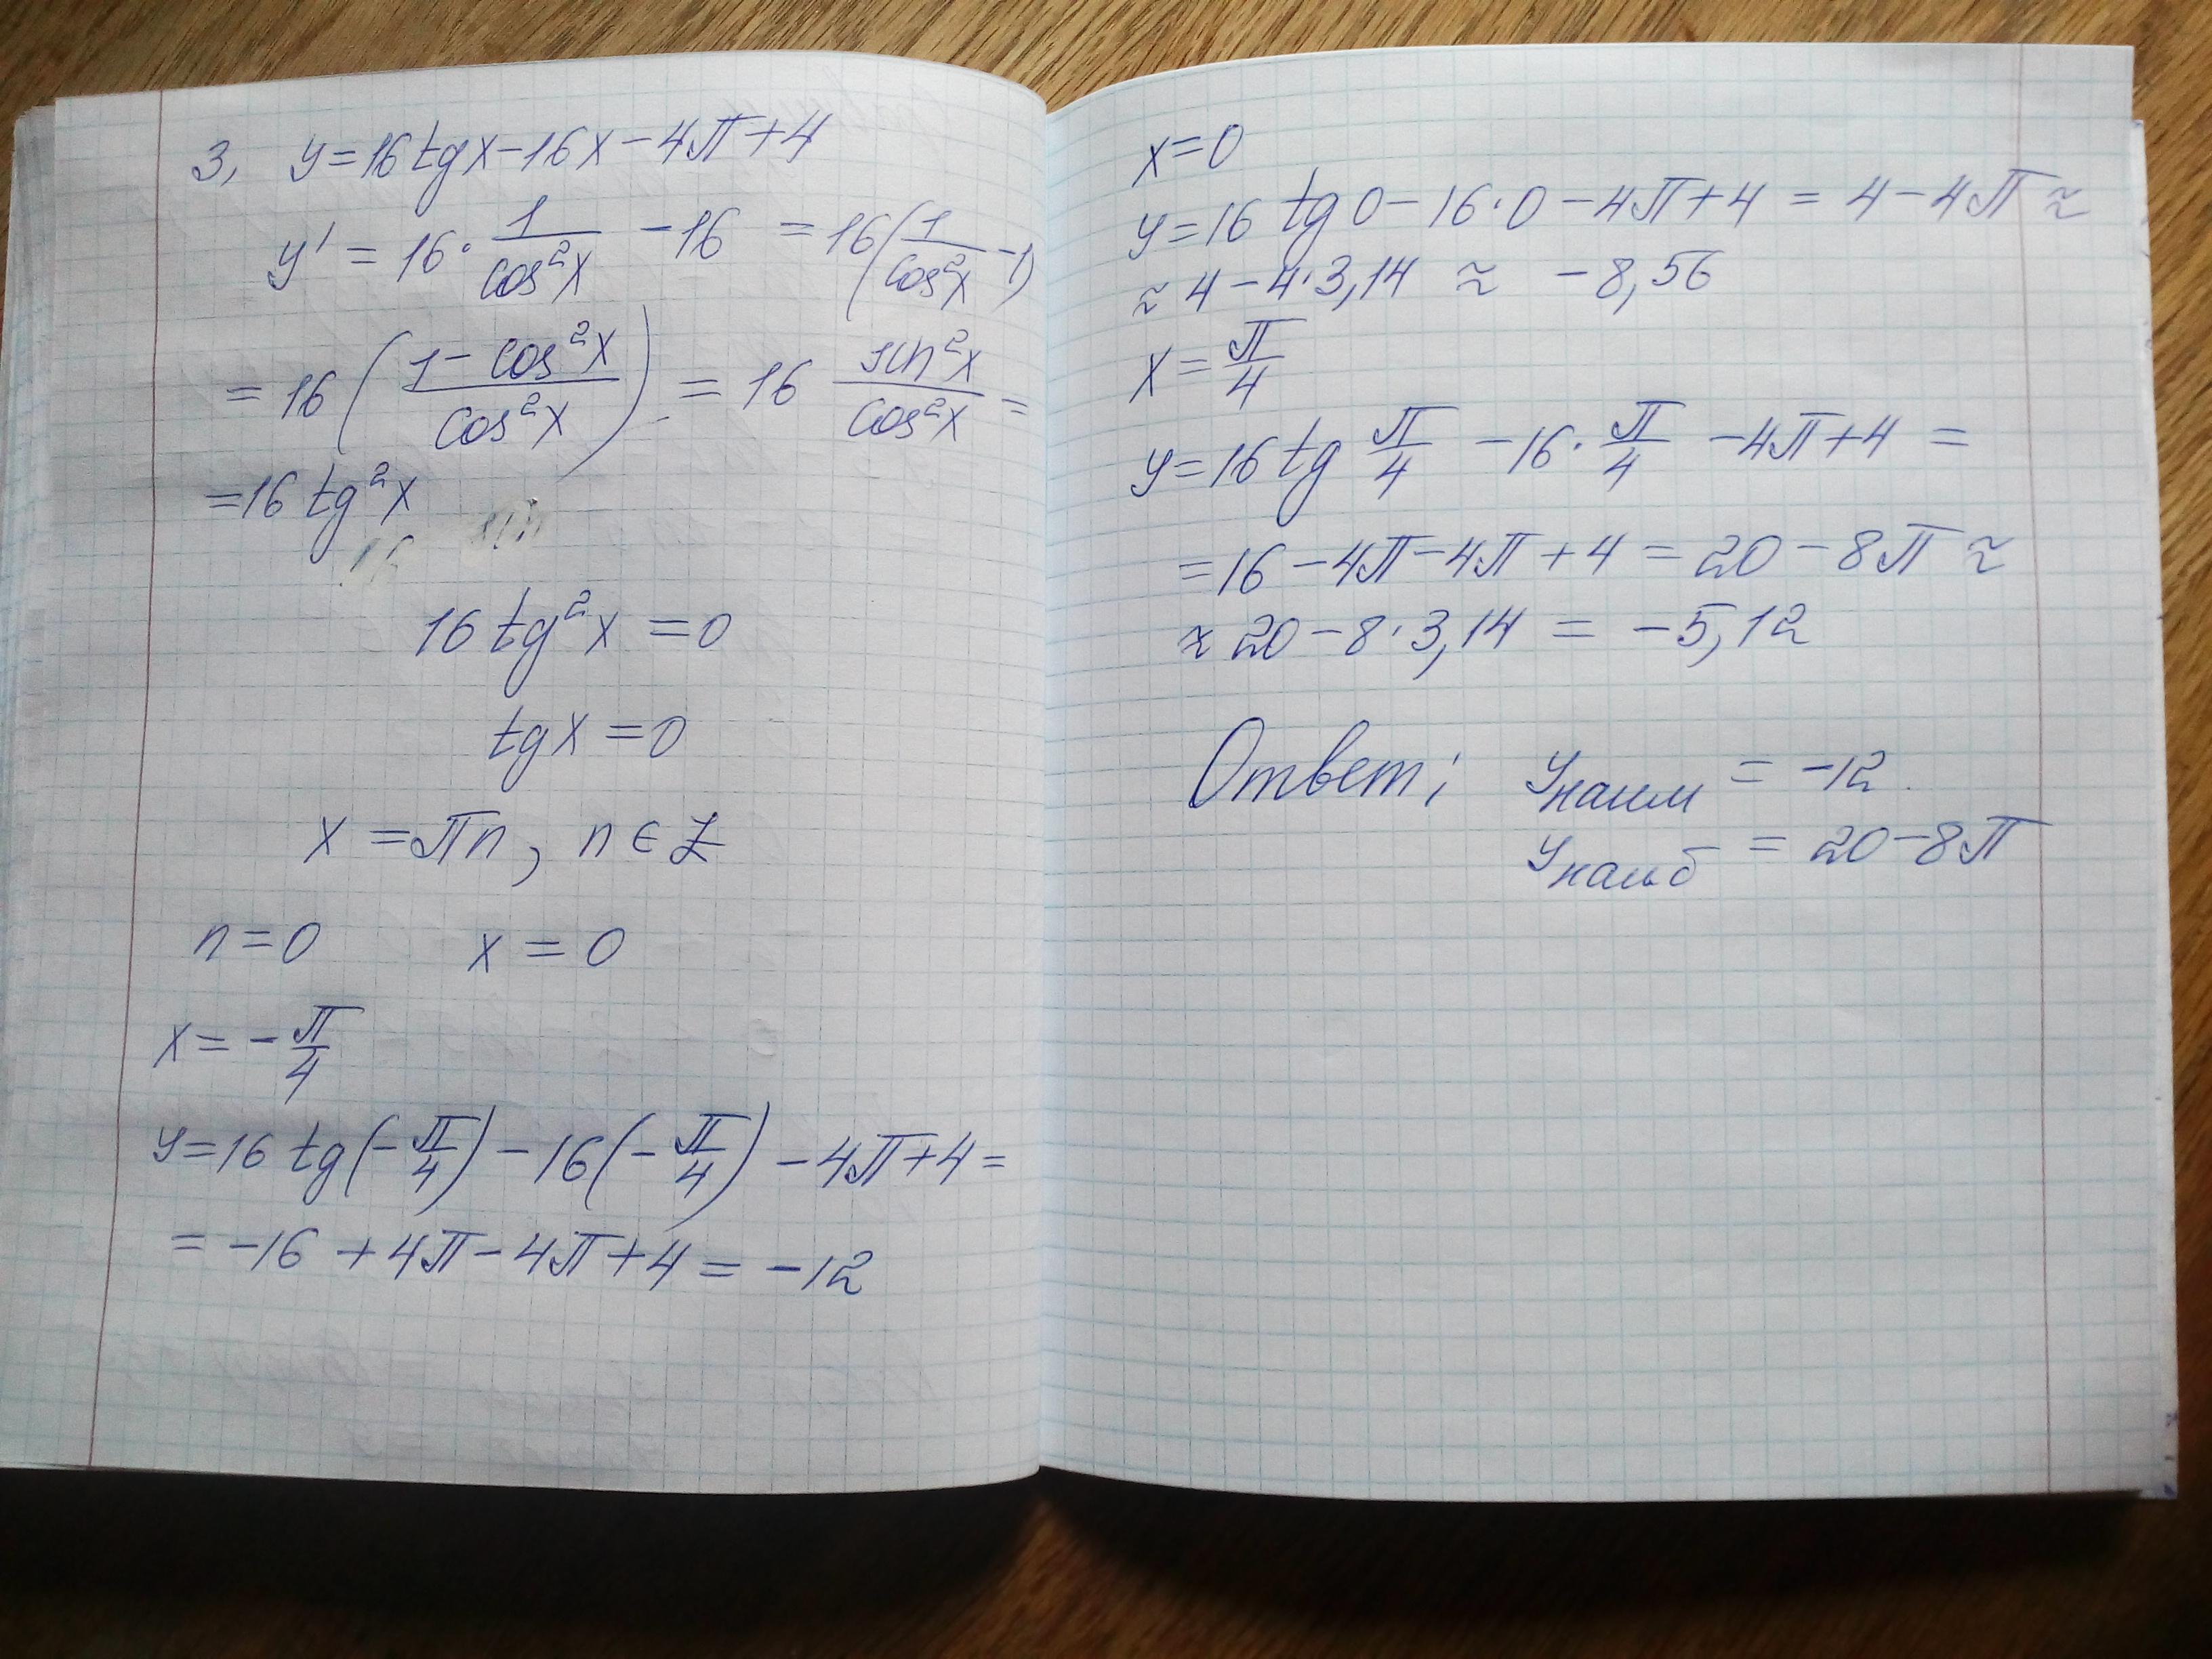 3, y=16tgx-16x-4π+4
y' = 16·1/cos²x -16 = 16(1/cos²x -1)
= 16((1-cos²x)/cos²x) = 16 sin²x/cos²x =
=16 tg²x
16 sin
16 tg²x = 0
tgx = 0
x = πn, n∈Z
n=0 x=0
x= -π/4
y=16 tg(-π/4) -16(-π/4) -4π+4=
= -16 +4π-4π+4 = -12
x=0
y=16 tg0-16·0-4π+4 = 4-4π≈
≈ 4-4·3,14 ≈ -8,56
x=π/4
y=16 tg π/4 -16·π/4 -4π+4 =
=16-4π-4π+4 = 20-8π≈
≈ 20-8·3,14 = -5,12
Ответ: yнаим = -12.
yнаиб = 20-8π